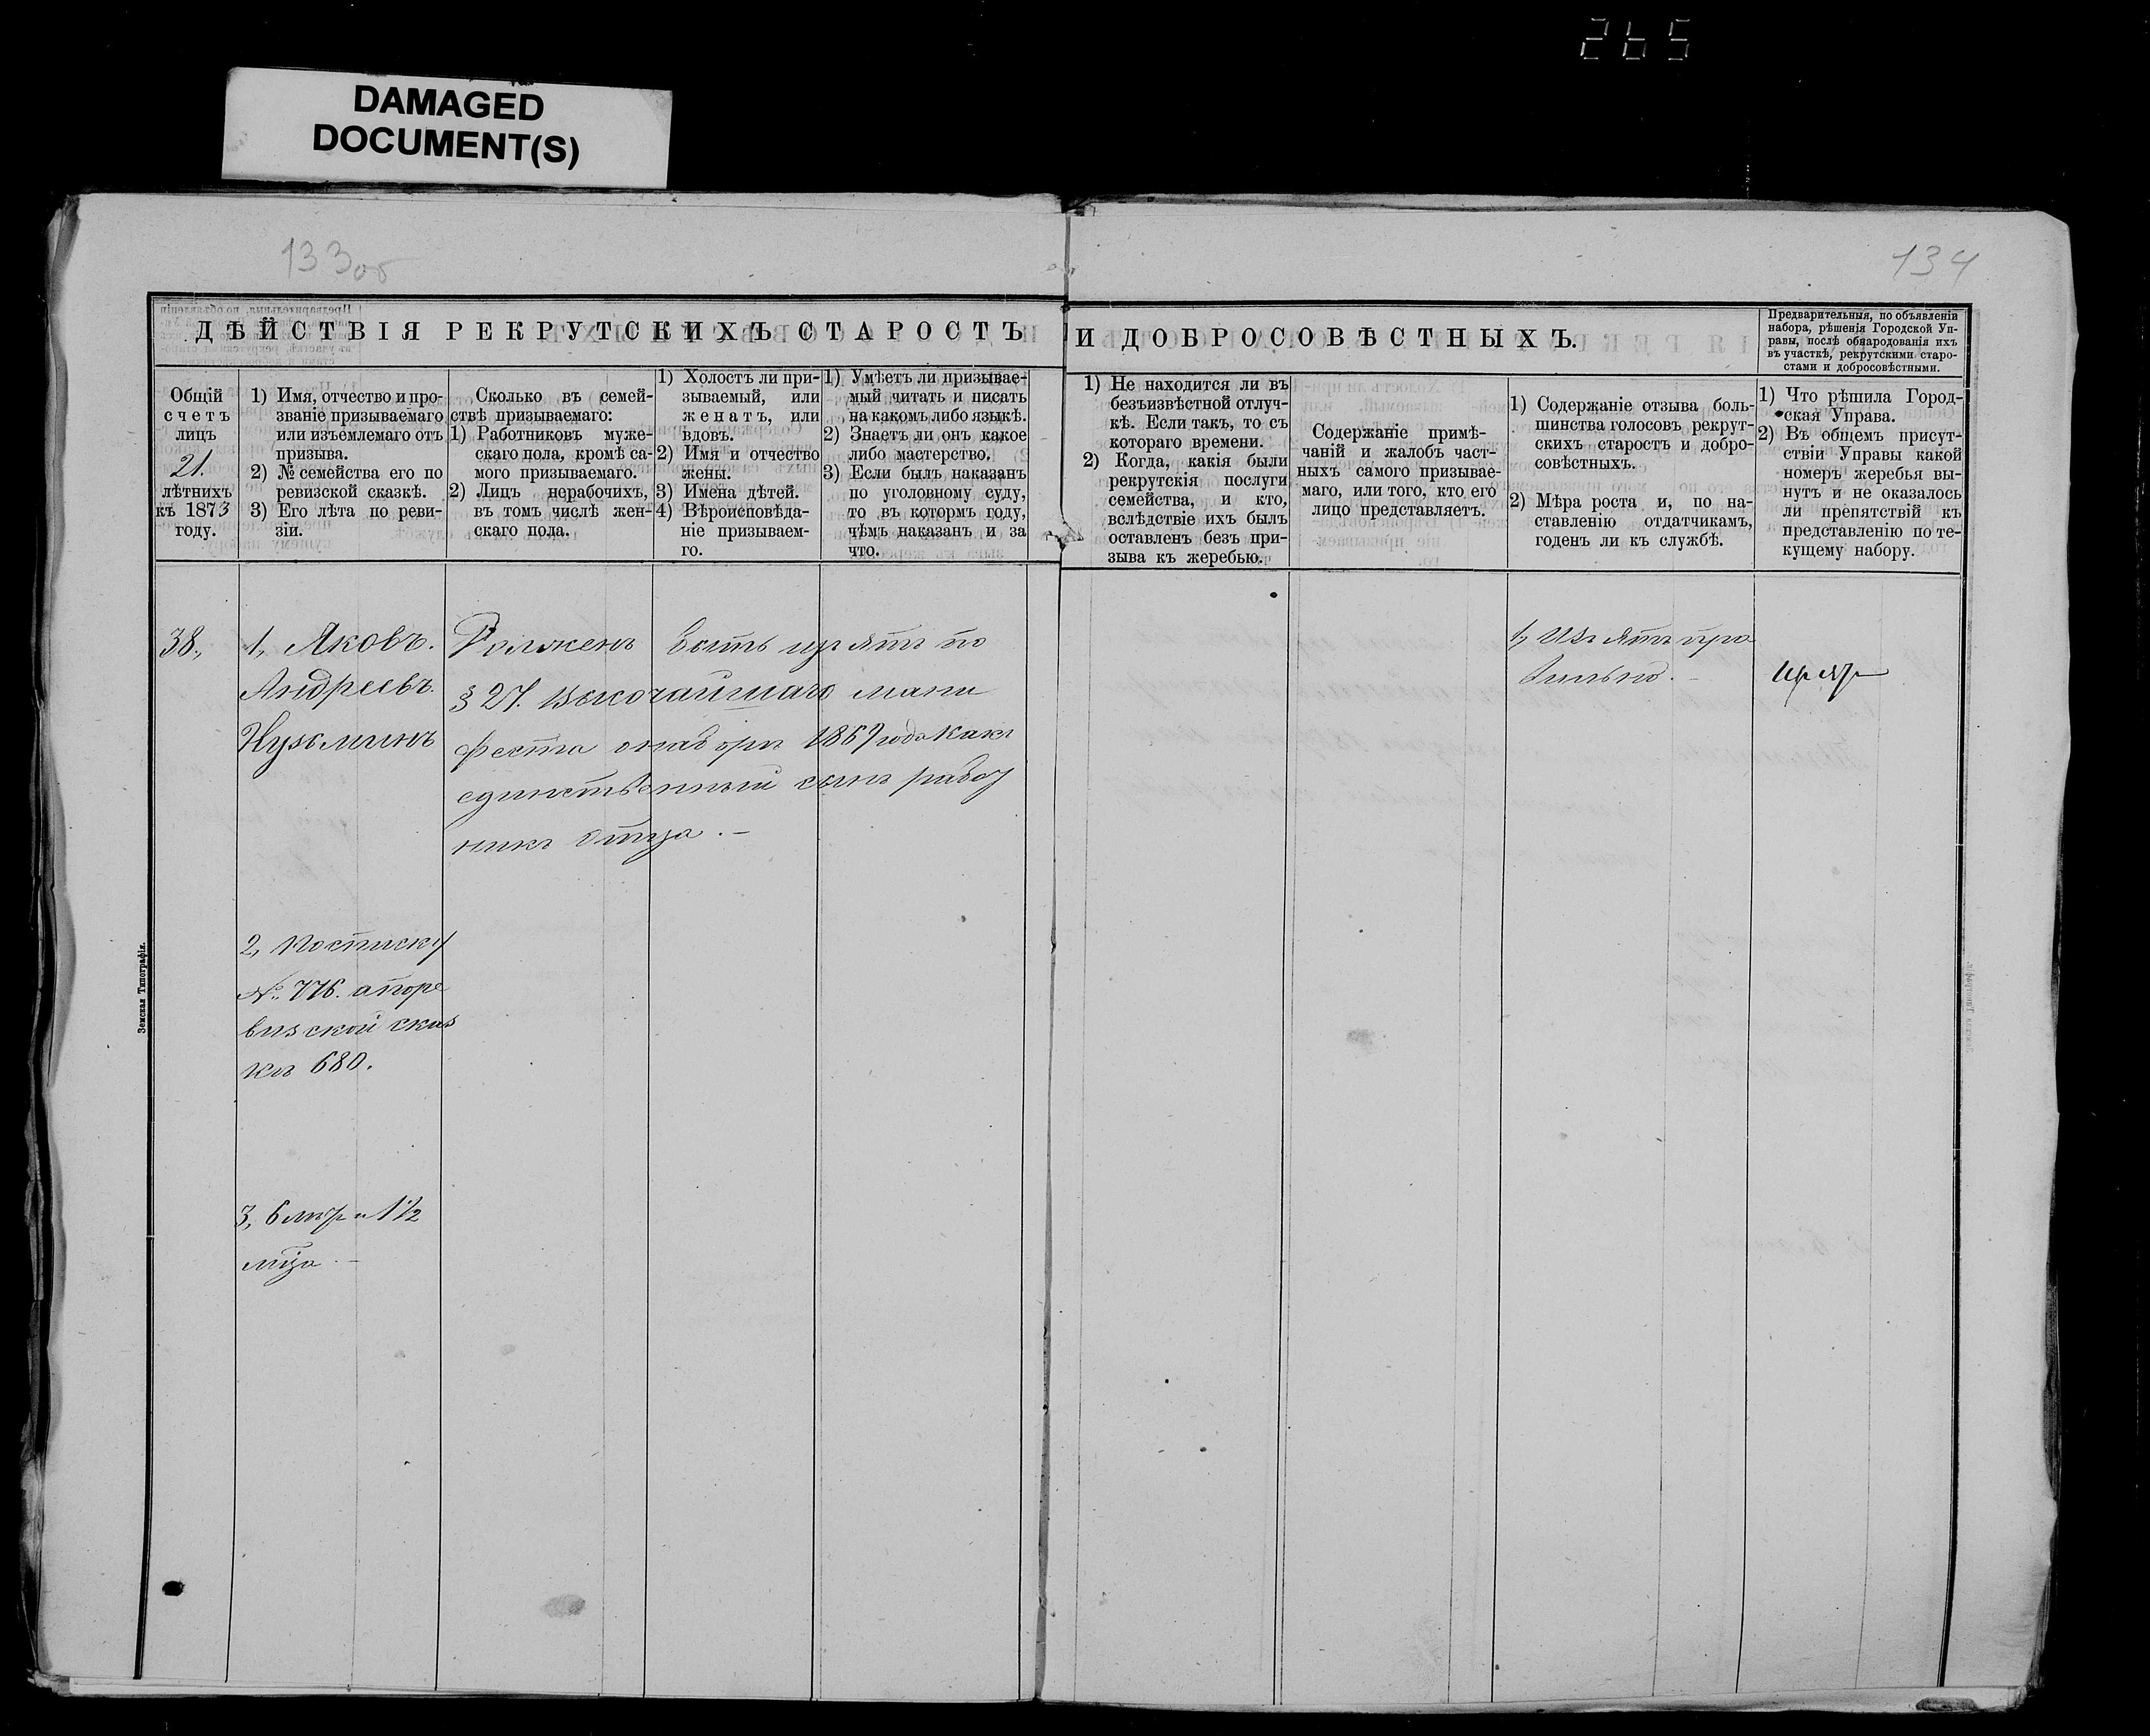 265
DAMAGED
DOCUMENT(S)
133об
134
ДѢЙСТВІЯ РЕКРУТСКИХЪ СТАРОСТЪ
И ДОБРОСОВѢСТНЫХЪ.
Предварительныя, по объявленіи
набора, рѣшенія Городской Уп-
равы, послѣ обнародованія ихъ
въ участкѣ, рекрутскими старо-
стами и добросовѣстными.
Общій
счетъ
лицъ
21.
лѣтнихъ
къ 1873
году.
1) Имя, отчество и про-
званіе призываемаго
или изъемлемаго отъ
призыва.
2) № семейства его по
ревизской сказкѣ.
3) Его лѣта по реви-
зіи.
Сколько въ семей-
ствѣ призываемаго:
1) Работниковъ муже-
скаго пола, кромѣ са-
мого призываемаго.
2) Лицъ нерабочихъ,
въ томъ числѣ жен-
скаго пола.
1) Холостъ ли при-
зываемый, или
женатъ, или
вдовъ.
2) Имя и отчество
жены.
3) Имена дѣтей.
4) Вѣроисповѣда-
ніе призываем-
го.
1) Умѣетъ ли призывае-
мый читать и писать
на какомъ либо языкѣ.
2) Знаетъ ли онъ какое
либо мастерство.
3) Если былъ наказанъ
по уголовному суду,
то въ которомъ году,
чѣмъ наказанъ и за
что.
1) Не находится ли въ
безъизвѣстной отлуч-
кѣ. Если такъ, то съ
котораго времени.
2) Когда, какія были
рекрутскія послуги
семейства, и кто,
вслѣдствіе ихъ былъ
оставленъ безъ при-
зыва къ жеребью.
Содержаніе примѣ-
чаній и жалобъ част-
ныхъ самого призывае-
маго, или того, кто его
лицо представляетъ.
1) Содержаніе отзыва боль-
шинства голосовъ рекрут-
скихъ старостъ и добро-
совѣстныхъ.
2) Мѣра роста и, по на-
ставленію отдатчикамъ,
годенъ ли къ службѣ.
1) Что рѣшила Город-
ская Управа.
2) Въ общемъ присут-
ствіи Управы какой
номеръ жеребья вы-
нутъ и не оказалось
ли препятствій къ
представленію по те-
кущему набору.
38.,
1, Яковъ.
Андреевъ.
Кузьминъ
2, По списку
№ 776. а по ре
визской сказ
кѣ 680.
3, 6 лѣтъ и 1½
мѣца. —
Долженъ быть изъятъ по
§ 27. Высочайшаго мани
феста о наборѣ 1869 года какъ
единственный сынъ работ
никъ отца. —
1, Изъятъ пра
вильно. —
Изъят
Земская Типографія.